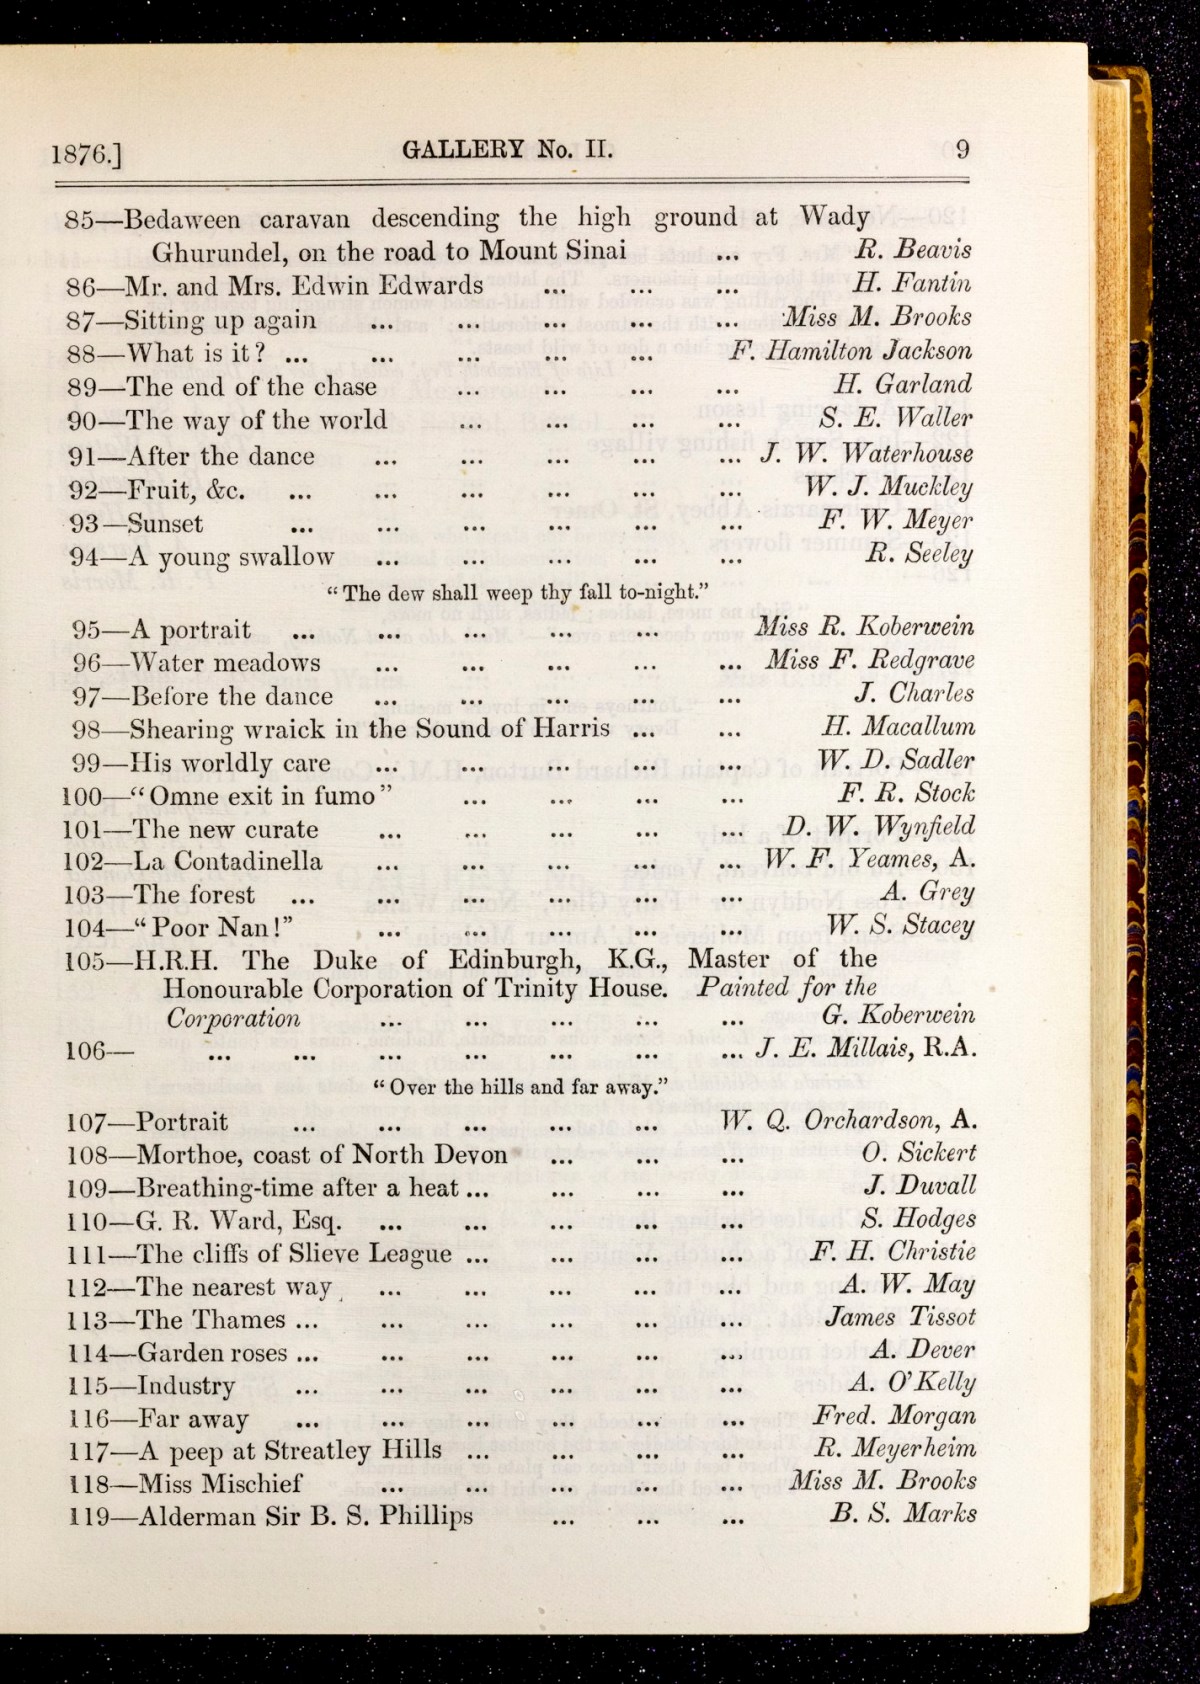 1876.] GALLERY No. II. 9
85—Bedaween caravan descending the high ground at Wady
Ghurundel, on the road to Mount Sinai ... R. Beavis
86—Mr. and Mrs. Edwin Edwards ... ... ... H. Fantin
87—Sitting up again ... ... ... ... ... Miss M. Brooks
88—What is it? ... ... ... ... ... F. Hamilton Jackson
89—The end of the chase ... ... ... ... H. Garland
90—The way of the world ... ... ... ... S. E. Waller
91—After the dance ... ... ... ... ... J. W. Waterhouse
92—Fruit, &c. ... ... ... ... ... ... W. J. Muckley
93—Sunset ... ... ... ... ... ... F. W. Meyer
94—A young swallow ... ... ... ... ... R. Seeley
"The dew shall weep thy fall to-night."
95—A portrait ... ... ... ... ... Miss R. Koberwein
96—Water meadows ... ... ... ... ... Miss F. Redgrave
97—Before the dance ... ... ... ... ... J. Charles
98—Shearing wraick in the Sound of Harris ... ... H. Macallum
99—His worldly care ... ... ... ... ... W. D. Sadler
100—"Omne exit in fumo" ... ... ... ... F. R. Stock
101—The new curate ... ... ... ... ... D. W. Wynfield
102—La Contadinella ... ... ... ... ... W. F. Yeames, A.
103—The forest ... ... ... ... ... ... A. Grey
104—"Poor Nan!" ... ... ... ... ... W. S. Stacey
105—H.R.H. The Duke of Edinburgh, K.G., Master of the
Honourable Corporation of Trinity House. Painted for the
Corporation ... ... ... ... ... G. Koberwein
106— ... ... ... ... ... ... ... J. E. Millais, R.A.
"Over the hills and far away."
107—Portrait ... ... ... ... ... W. Q. Orchardson, A.
108—Morthoe, coast of North Devon ... ... ... O. Sickert
109—Breathing-time after a heat ... ... ... ... J. Duvall
110—G. R. Ward, Esq. ... ... ... ... ... S. Hodges
111—The cliffs of Slieve League ... ... ... ... F. H. Christie
112—The nearest way ... ... ... ... ... A. W. May
113—The Thames ... ... ... ... ... ... James Tissot
114—Garden roses ... ... ... ... ... ... A. Dever
115—Industry ... ... ... ... ... ... A. O'Kelly
116—Far away ... ... ... ... ... ... Fred. Morgan
117—A peep at Streatley Hills ... ... ... ... R. Meyerheim
118—Miss Mischief ... ... ... ... ... Miss M. Brooks
119—Alderman Sir B. S. Phillips ... ... ... B. S. Marks